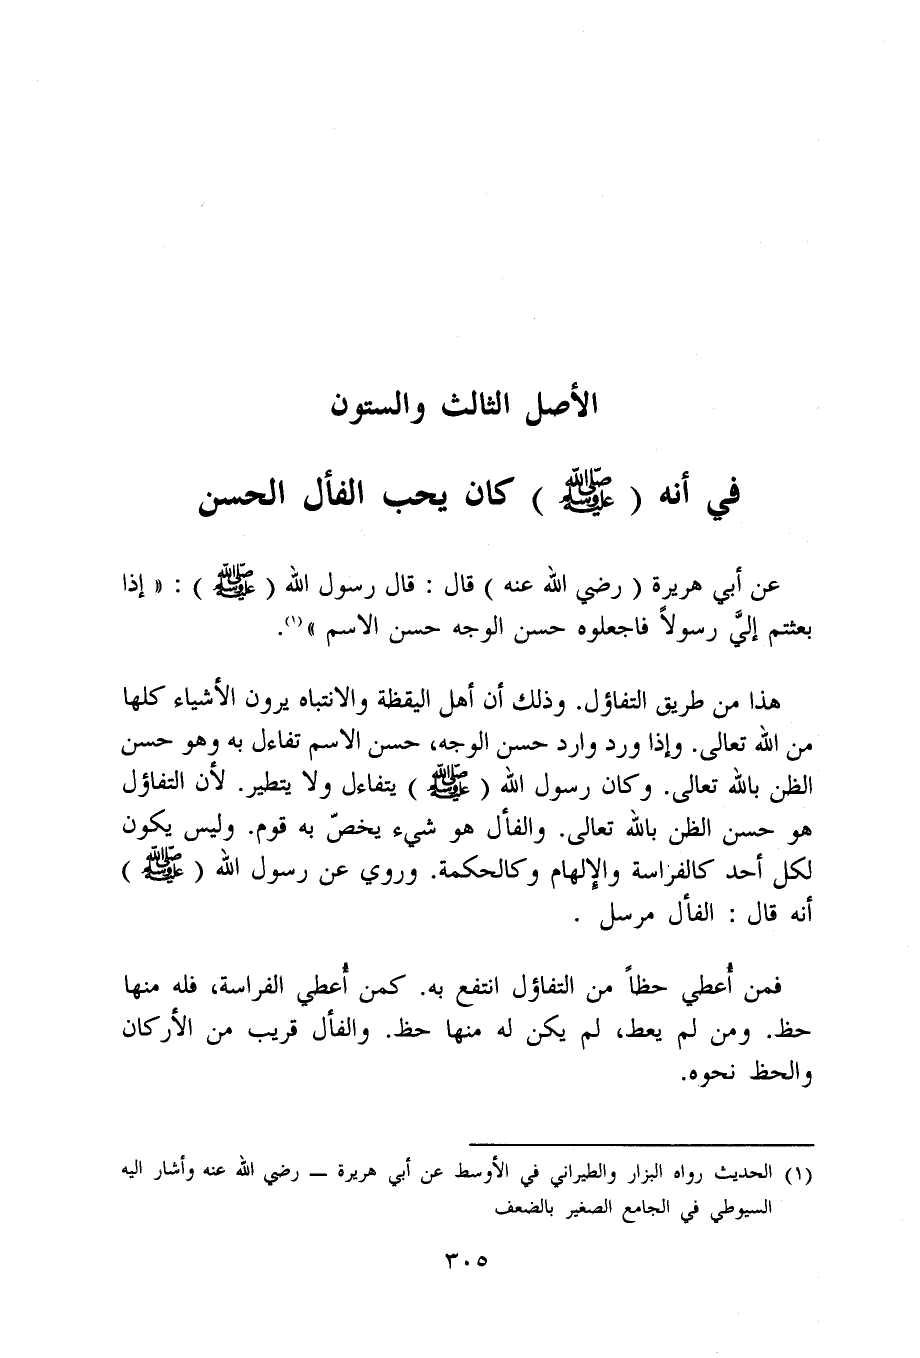 الأصل الثالث والستون
في أنه ( ﷺ ) كان يحب الفأل الحسن
عن أبي هريرة ( رضي الله عنه ) قال : قال رسول الله ( ﷺ ) : « إذا
بعثتم إليَّ رسولاً فاجعلوه حسن الوجه حسن الاسم »(١).
هذا من طريق التفاؤل. وذلك أن أهل اليقظة والانتباه يرون الأشياء كلها
من الله تعالى. وإذا ورد وارد حسن الوجه، حسن الاسم تفاءل به وهو حسن
الظن بالله تعالى. وكان رسول الله ( ﷺ ) يتفاءل ولا يتطير. لأن التفاؤل
هو حسن الظن بالله تعالى. والفأل هو شيء يخصّ به قوم. وليس يكون
لكل أحد كالفراسة والإلهام وكالحكمة. وروي عن رسول الله ( ﷺ )
أنه قال : الفأل مرسل .
فمن أُعطي حظاً من التفاؤل انتفع به. كمن أُعطي الفراسة، فله منها
حظ. ومن لم يعط، لم يكن له منها حظ. والفأل قريب من الأركان
والحظ نحوه.
(١) الحديث رواه البزار والطيراني في الأوسط عن أبي هريرة – رضي الله عنه وأشار اليه
السيوطي في الجامع الصغير بالضعف
٣٠٥